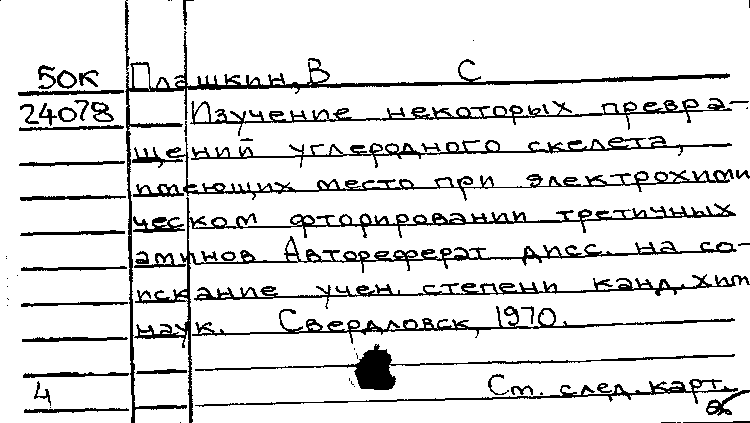 50К Плашкин, В С
24078 Изучение некоторых превра-
щений углеродного скелета,
имеющих место при электрохими
ческом фторировании третичных
аминов. Автореферат дисс. на со-
искание учен. степени канд. хим
наук. Свердловск, 1970.
4 См. след. карт.